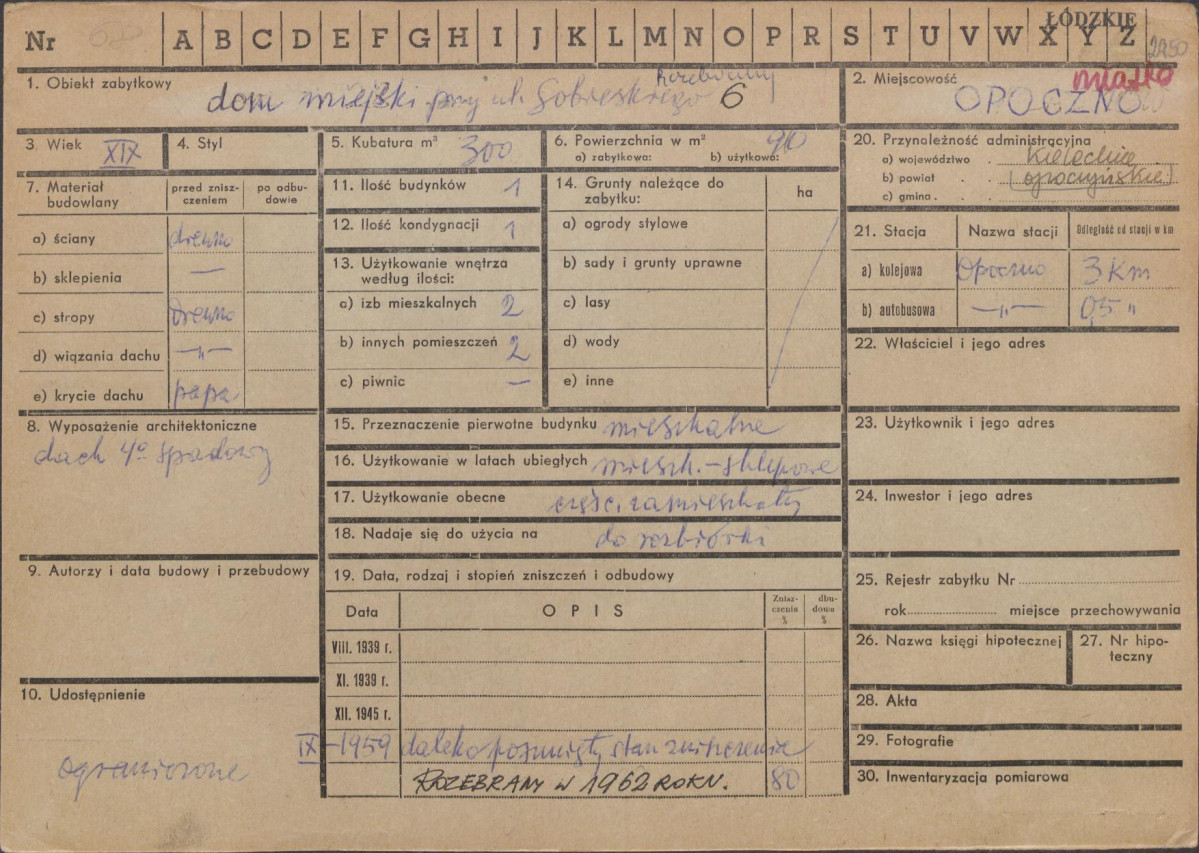 ŁÓDZKIE
Nr A B C D E F G H I J K L M N O P R S T U V W X Y Z
2250
1. Obiekt zabytkowy
Rozebrany
dom miejski przy ul. Sobieskiego 6
2. Miejscowość miasto
OPOCZNO
3. Wiek XIX
4. Styl
5. Kubatura m³ 300
6. Powierzchnia w m² 90
a) zabytkowa: b) użytkowa:
7. Materiał budowlany
przed zniszczeniem
po odbudowie
a) ściany drewno
b) sklepienia —
c) stropy drewno
d) wiązania dachu —„—
e) krycie dachu papa
8. Wyposażenie architektoniczne
dach 4º spadowy
9. Autorzy i data budowy i przebudowy
10. Udostępnienie
ograniczone
11. Ilość budynków 1
12. Ilość kondygnacji 1
13. Użytkowanie wnętrza
według ilości:
a) izb mieszkalnych 2
b) innych pomieszczeń 2
c) piwnic —
14. Grunty należące do
zabytku:
ha
a) ogrody stylowe
b) sady i grunty uprawne
c) lasy
d) wody
e) inne
15. Przeznaczenie pierwotne budynku mieszkalne
16. Użytkowanie w latach ubiegłych mieszk.-sklepowe
17. Użytkowanie obecne częśc. zamieszkały
18. Nadaje się do użycia na do rozbiórki
19. Data, rodzaj i stopień zniszczeń i odbudowy
Data OPIS Zniszczenia % dbudowa %
VIII. 1939 r.
XI. 1939 r.
XII. 1945 r.
IX-1959 daleko posunięty stan zniszczenia
ROZEBRANY W 1962 ROKU. 80
20. Przynależność administracyjna
a) województwo . kieleckie
b) powiat . . (opoczyńskie)
c) gmina . .
21. Stacja Nazwa stacji Odległość od stacji w km
a) kolejowa Opoczno 3 Km
b) autobusowa —„— 0,5 „
22. Właściciel i jego adres
23. Użytkownik i jego adres
24. Inwestor i jego adres
25. Rejestr zabytku Nr
rok miejsce przechowywania
26. Nazwa księgi hipotecznej
27. Nr hipo-
teczny
28. Akta
29. Fotografie
30. Inwentaryzacja pomiarowa